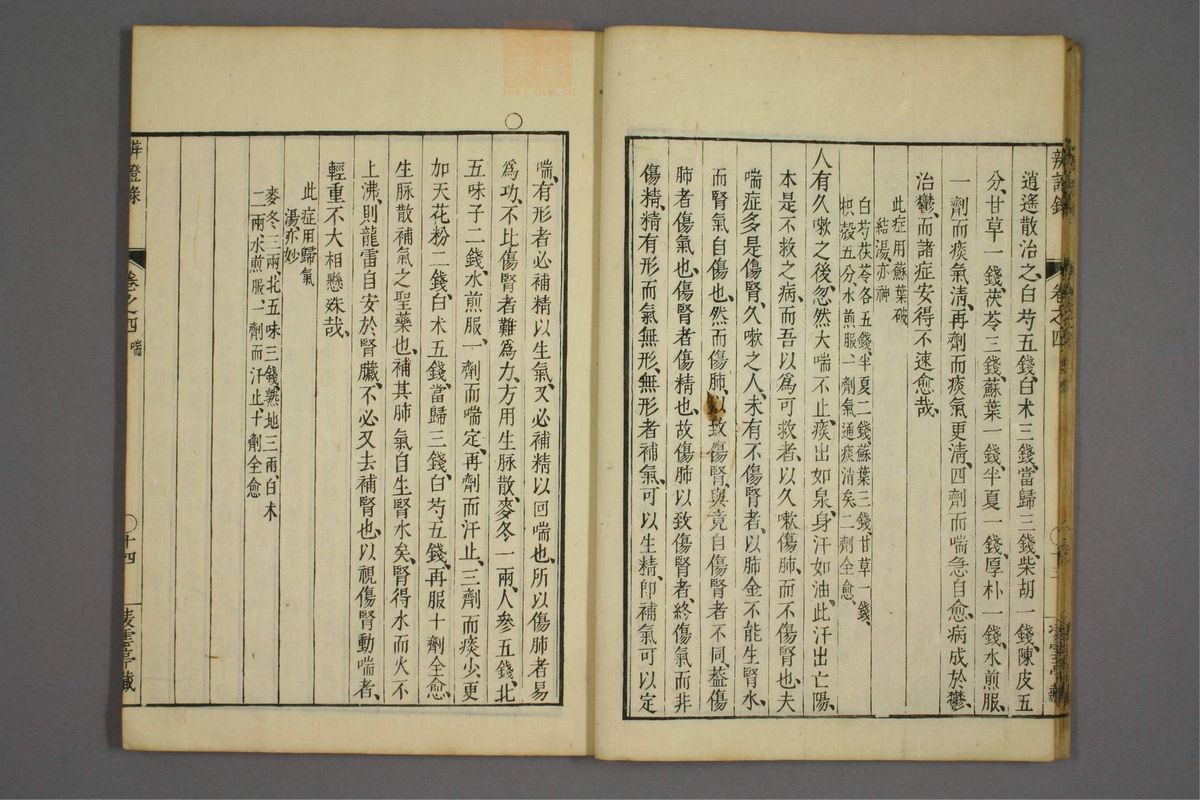 逍遙散治之、白芍五錢、白术三錢、當歸三錢、柴胡一錢、陳皮五
分、甘草一錢、茯苓三錢、蘇葉一錢、半夏一錢、厚朴一錢、水煎服、
一劑而痰氣清、再劑而痰氣更清、四劑而喘急自愈、病成於鬱、
治鬱、而諸症安得不速愈哉、
此症用蘇葉破
結湯、亦神
白芍茯苓各五錢、半夏二錢、蘇葉三錢、甘草一錢、
枳殼五分、水煎服、一劑氣通痰消矣、二劑全愈、
人有久嗽之後、忽然大喘不止、痰出如泉、身汗如油、此汗出亡陽、
本是不救之病、而吾以爲可救者、以久嗽傷肺、而不傷腎也、夫
喘症多是傷腎、久嗽之人、未有不傷腎者、以肺金不能生腎水、
而腎氣自傷也、然而傷肺、以致傷腎、與竟自傷腎者不同、葢傷
肺者傷氣也、傷腎者傷精也、故傷肺以致傷腎者、終傷氣而非
傷精、精有形而氣無形、無形者補氣、可以生精、卽補氣可以定
喘、有形者必補精以生氣、又必補精以回喘也、所以傷肺者易
爲功、不比傷腎者難爲力、方用生脉散、麥冬一兩、人參五錢、北
五味子二錢、水煎服、一劑而喘定、再劑而汗止、三劑而痰少、更
加天花粉二錢、白术五錢、當歸三錢、白芍五錢、再服十劑全愈、
生脉散補氣之聖藥也、補其肺氣自生腎水矣、腎得水而火不
上沸、則龍雷自安於腎臟、不必又去補腎也、以視傷腎動喘者、
輕重不大相懸殊哉、
此症用歸氣
湯、亦妙
麥冬三兩、北五味三錢、熟地三兩、白术
二兩、水煎服、一劑而汗止、十劑全愈
卷之四 喘
十四